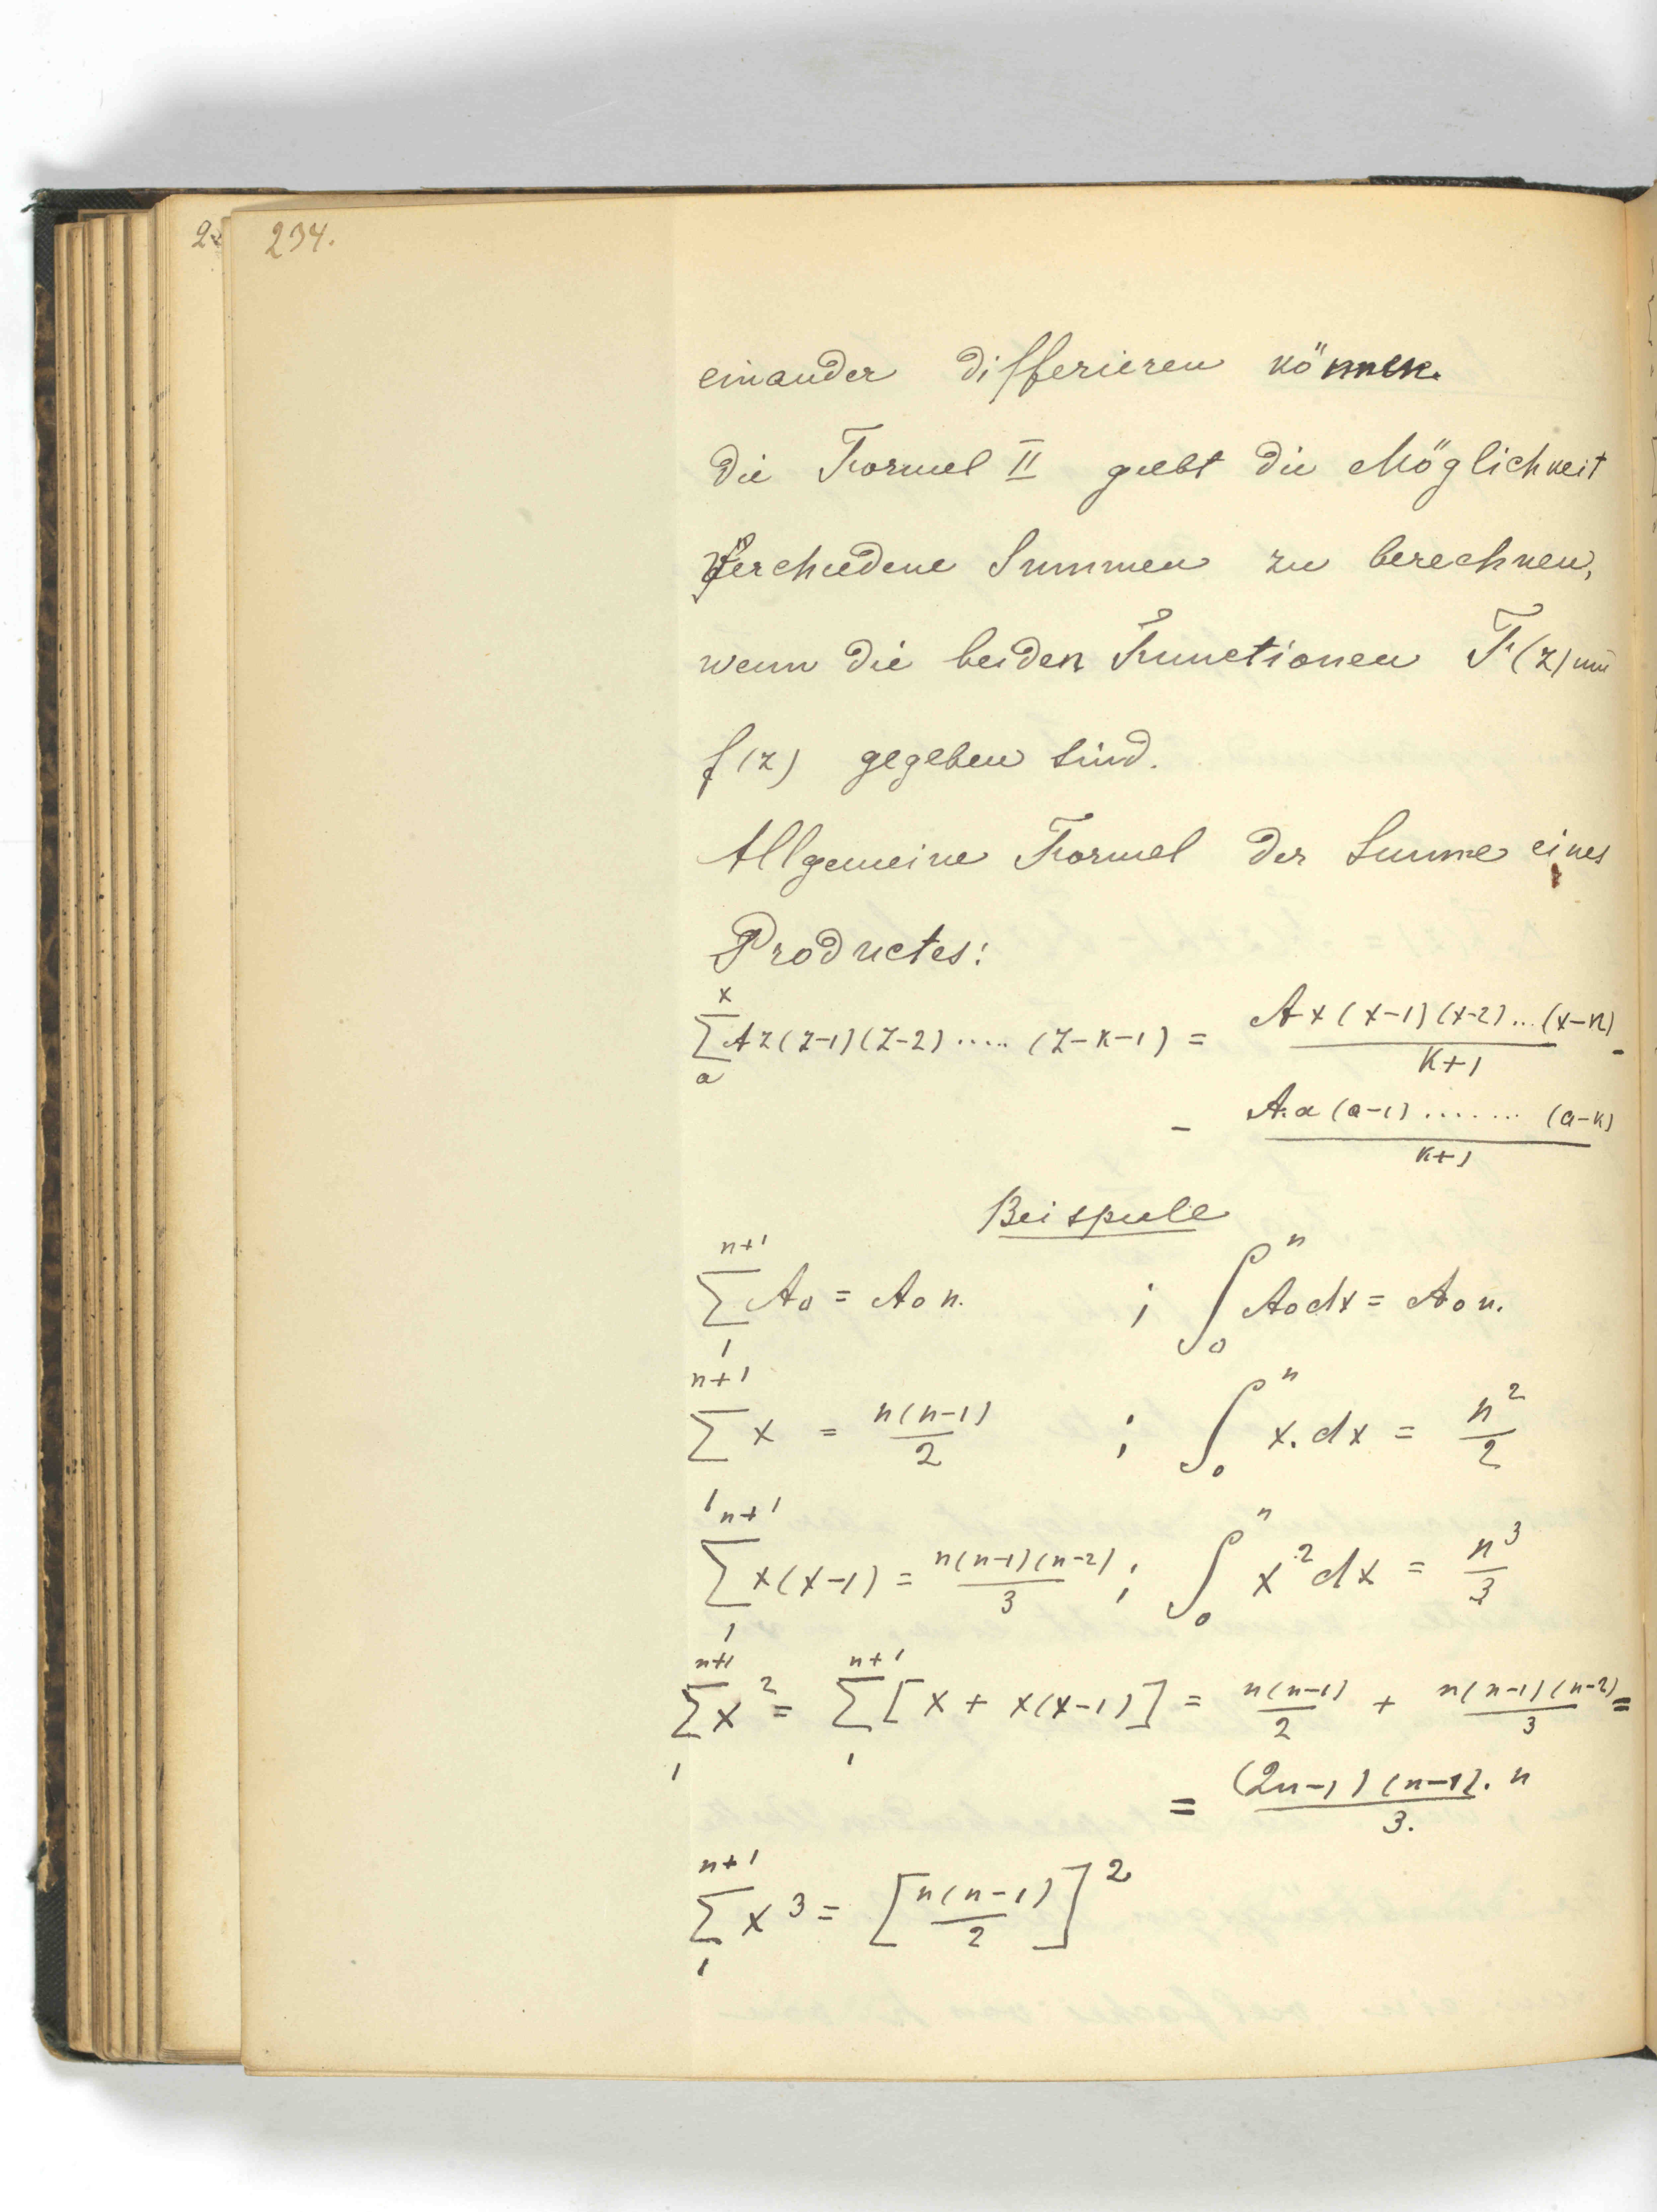 234.
einander differieren können.
die Formel II giebt die Möglichkeit
verschiedene Summen zu berechnen,
wenn die beiden Functionen F(z) und
f(z) gegeben sind.
Allgemeine Formel der Summe eines
Productes:
\sum_{a}^{x} Az(z-1)(z-2).....(z-k-1) = \frac{Ax(x-1)(x-2)...(x-k)}{k+1} -
- \frac{A.a(a-1).......(a-k)}{k+1}
Beispiele
\sum_{1}^{n+1} A_0 = A_0 n. ; \int_{0}^{n} A_0 dx = A_0 n.
\sum_{1}^{n+1} x = \frac{n(n-1)}{2} ; \int_{0}^{n} x.dx = \frac{n^2}{2}
\sum_{1}^{n+1} x(x-1) = \frac{n(n-1)(n-2)}{3} ; \int_{0}^{n} x^2 dx = \frac{n^3}{3}
\sum_{1}^{n+1} x^2 = \sum_{1}^{n+1} [x + x(x-1)] = \frac{n(n-1)}{2} + \frac{n(n-1)(n-2)}{3} =
= \frac{(2n-1)(n-1).n}{3.}
\sum_{1}^{n+1} x^3 = [\frac{n(n-1)}{2}]^2